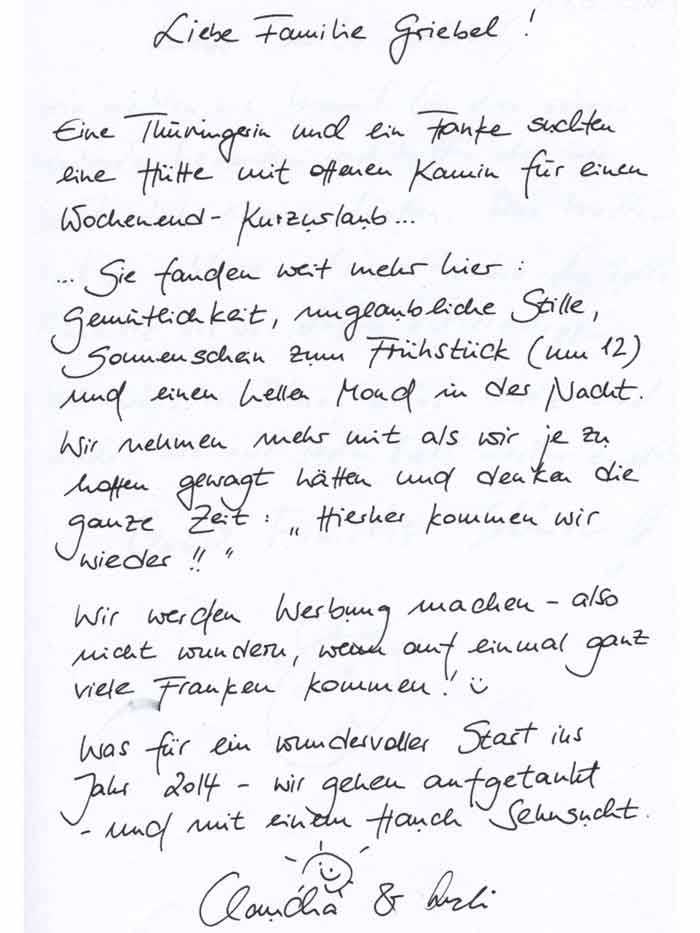 Liebe Familie Griebel!
Eine Thüringerin und ein Franke suchten
eine Hütte mit offenen Kamin für einen
Wochenend-Kurzurlaub...
... Sie fanden weit mehr hier:
Gemütlichkeit, unglaubliche Stille,
Sonnenschein zum Frühstück (um 12)
und einen hellen Mond in der Nacht.
Wir nehmen mehr mit als wir je zu
hoffen gewagt hätten und denken die
ganze Zeit: „Hierher kommen wir
wieder!!“
Wir werden Werbung machen - also
nicht wundern, wenn auf einmal ganz
viele Franken kommen!
Was für ein wundervoller Start ins
Jahr 2014 - wir gehen aufgetankt
- und mit einem Hauch Sehnsucht.
Claudia &